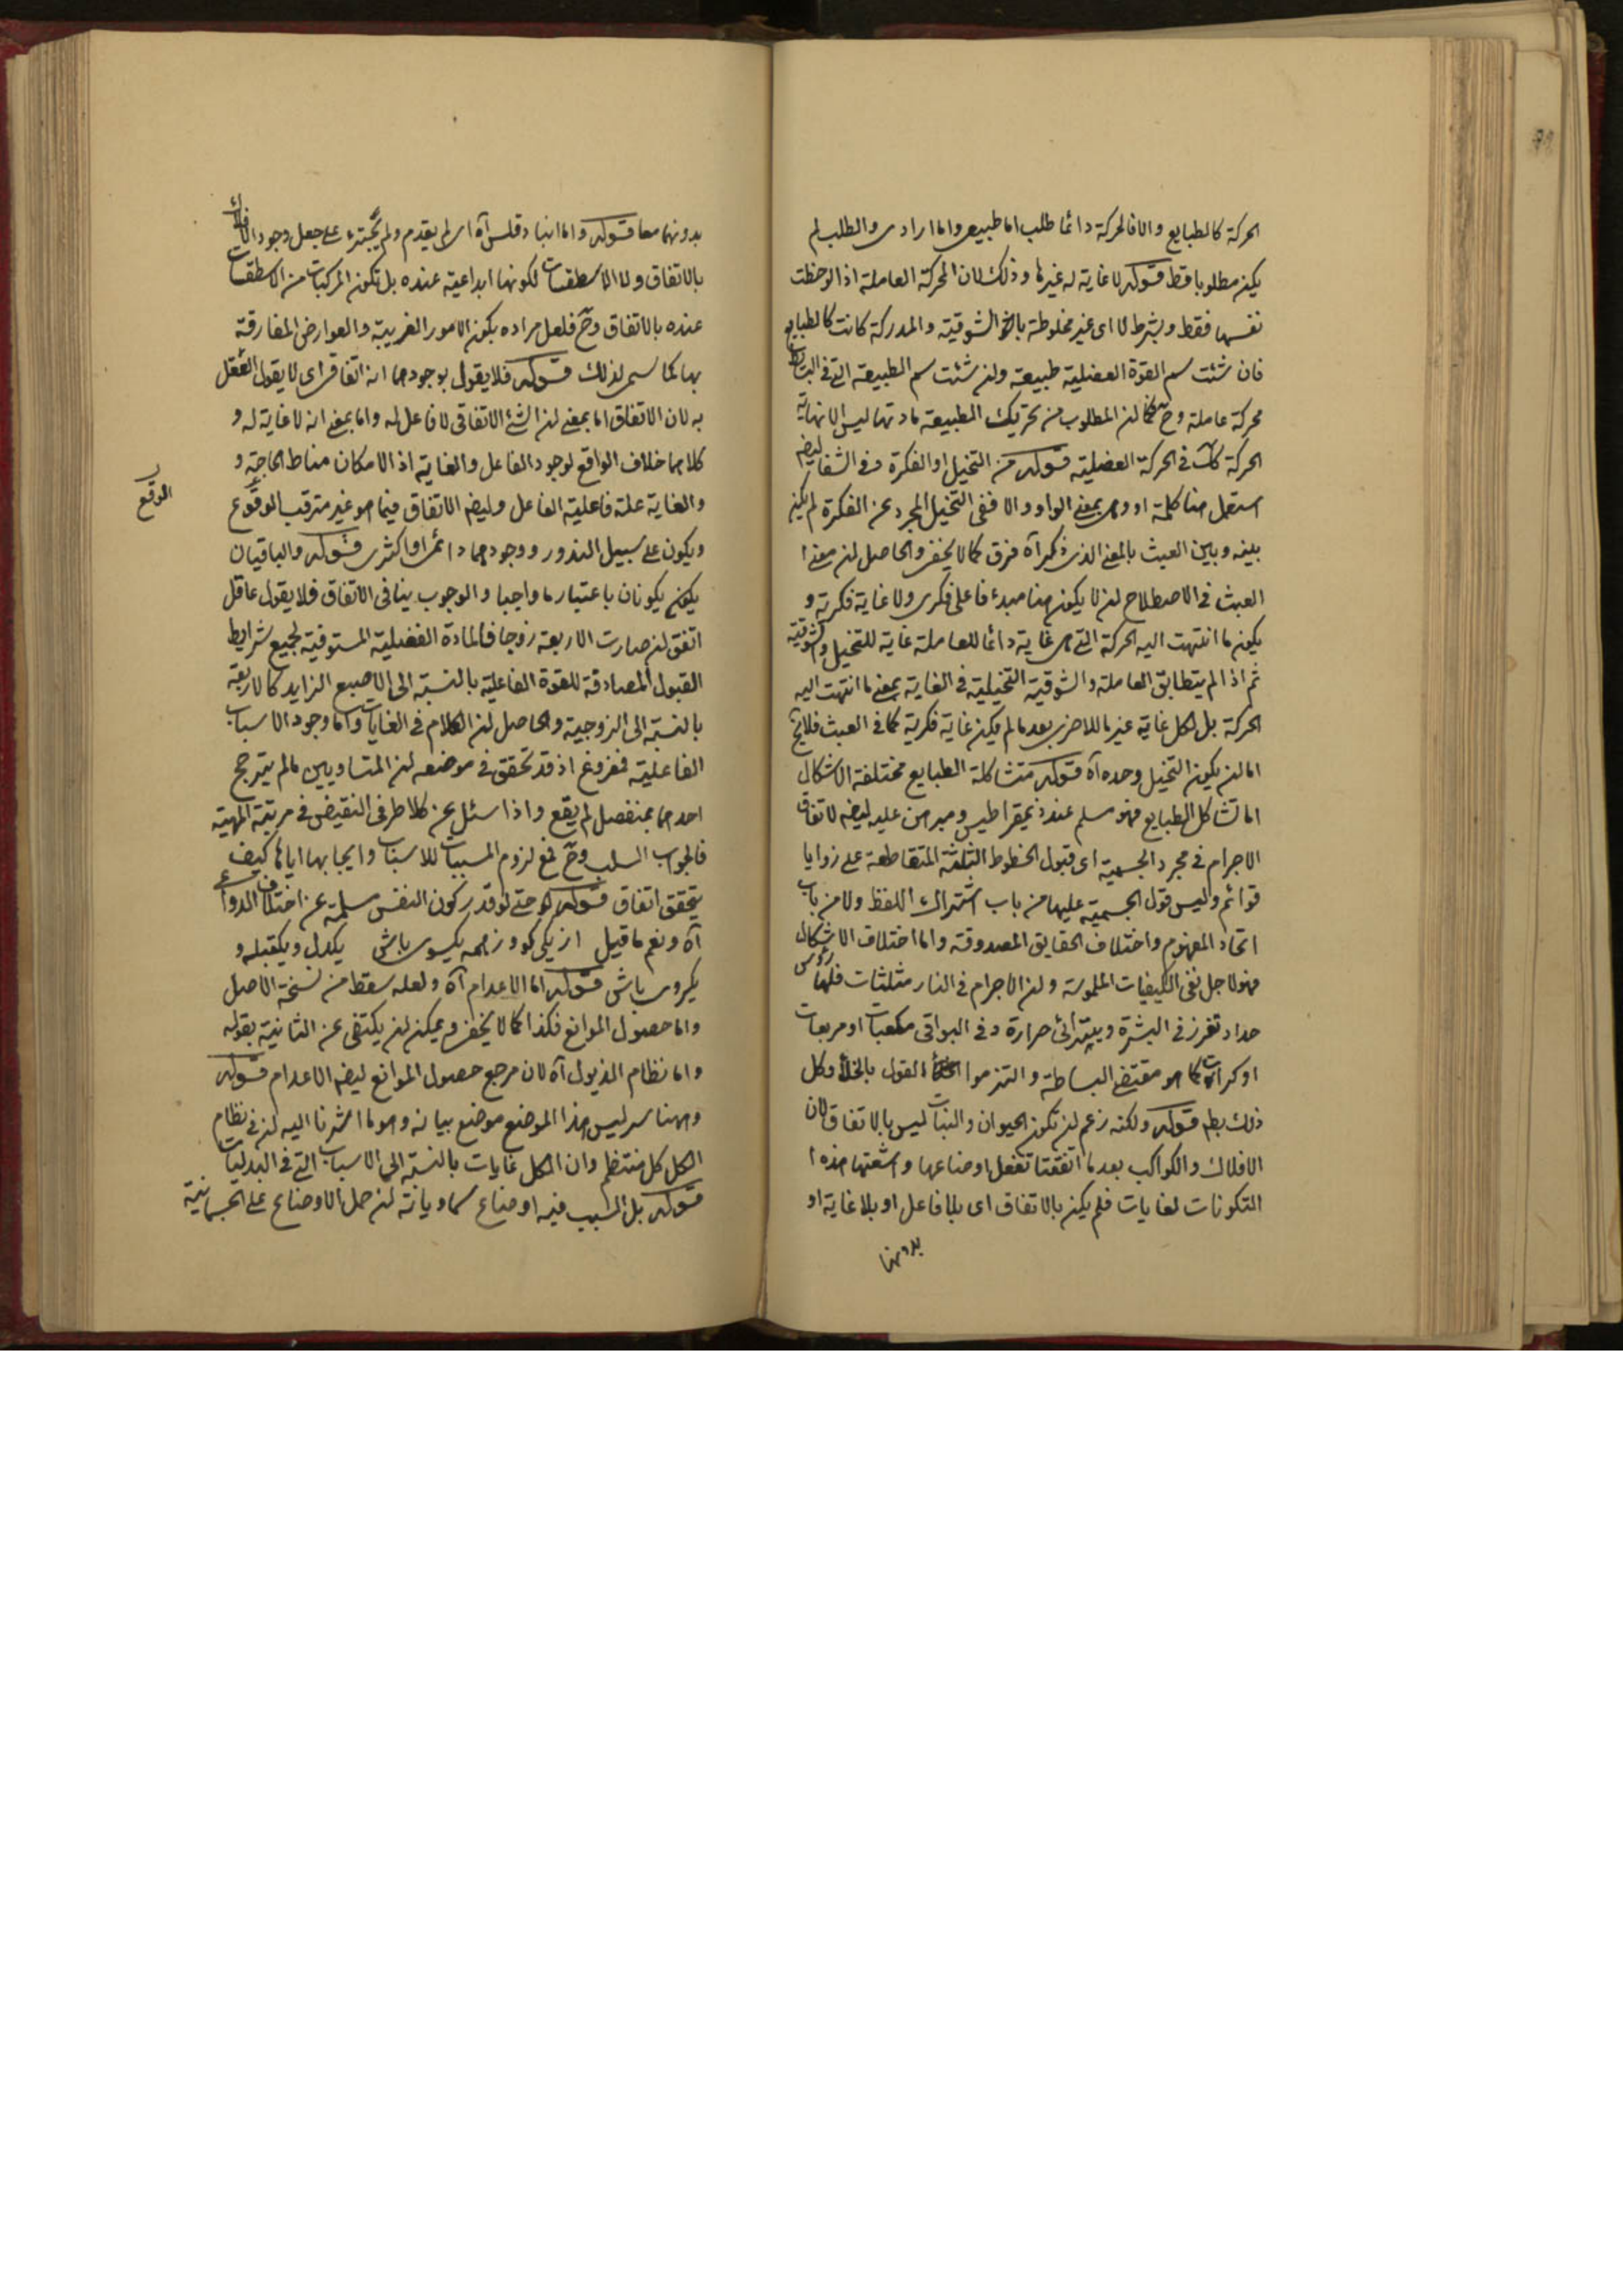 الحركة كالطبايع والا فالحركة دائما طلب اما طبيعى واما ارادى والطلب لم
يكن مطلوبا قط قوله لا غاية له غيرها وذلك لان المحركة العاملة اذا لوحظت
نفسها فقط وبشرط لا اى غير مخلوطة الشوقية والمدركة كانت كالطبايع
فان شئت سم القوة العضلية طبيعة ولن شئت سم الطبيعة التى فى البسايط
محركة عاملة وح فكما لن المطلوب من تحريك الطبيعة مادتها ليس الا نهاية
الحركة كك فى الحركة العضلية قوله من التخيل او الفكرة وفى الشفا ليضم
استعمل هنا كلمة او وهى بمعنى الواو والا ففى التخيل المجرد عن الفكرة لم يكن
بينه وبين العبث بالمعنى الذى ذكر آه فرق كما لا يخفى والحاصل لن معنى
العبث فى الاصطلاح لن لا يكون هنا مبدء فاعلى فكرى ولا غاية فكرية و
يكون ما انتهت اليه الحركة التى هى غاية دائما للعاملة غاية للتخيل والشوقية
ثم اذا لم يتطابق العاملة والشوقية التخيلية فى الغاية بمعنى ما انتهت اليه
الحركة بل لكل غاية غير ما للاخرى بعد ما لم يكن غاية فكرية كما فى العبث فلا يخ
اما لن يكون التخيل وحده آه قوله متشاكلة الطبايع مختلفة الاشكال
اما تشاكل الطبايع فهو مسلم عند ذيمقراطيس ومبرهن عليه ليضم لاتفاق
الاجرام فى مجرد الجسمية اى قبول الخطوط الثلثة المتقاطعة على زوايا
قوائم وليس قول الجسمية عليها من باب اشتراك اللفظ ولا من باب
اتحاد المفهوم واختلاف الحقايق المصدوقة واما اختلاف الاشكال
فهو لاجل نفى الكيفيات الملموسة ولن الاجرام فى النار مثلثات فلها رؤس
حداد تغرز فى البشرة ويتراءى حرارة وفى البواقى مكعبات او مربعات
او كرات كما هو مقتضى البساطة والتزموا القول بالخلأ وكل
ذلك بطم قوله ولكنه زعم لن تكون الحيوان والنبات ليس بالاتفاق لان
الافلاك والكواكب بعد ما اتفقتا تفعل اوضاعها واشعتها هذه
التكونات لغايات فلم يكن بالاتفاق اى بلا فاعل او بلا غاية او
بدونهما
بدونهما معا قوله واما انباذقلس آه اى لم يقدم ولم يجترء على جعل وجود الافلاك
بالاتفاق ولا الاسطقسات لكونها ابداعية عنده بل تكون المركبات من الاسطقسات
عنده بالاتفاق وح فلعل مراده يكون الامور الغريبة والعوارض المفارقة
بها كما سمى لذلك قوله فلا يقول بوجودهما انه اتفاقى اى لا يقول العقل
به لان الاتفاق اما بمعنى لن الشئ الاتفاقى لا فاعل له واما بمعنى انه لا غاية له و
كلاهما خلاف الواقع لوجود الفاعل والغاية اذ الامكان مناط الحاجة و
والغاية علة فاعلية الفاعل وليضم الاتفاق فيما هو غير مترقب الوقوع
الوقوع
ويكون على سبيل الندور ووجودهما دائمى او اكثرى قوله والباقيان
يكونان باعتبار ما واجبا والوجوب ينافى الاتفاق فلا يقول عاقل
اتفق لن صارت الاربعة زوجا فالمادة الفضلية المستوفية لجميع شرايط
القبول المصادفة للقوة الفاعلية بالنسبة الى الاصبع الزايد كالاربعة
بالنسبة الى الزوجية والحاصل لن الكلام فى الغايات واما وجود الاسباب
الفاعلية فمفروغ اذ قد تحقق فى موضعه لن المتساويين ما لم يترجح
احدهما بمنفصل لم يقع واذا سئل عن كلا طرفى النقيض فى مرتبة المهية
فالجواب السلب وح فمع لزوم المسببات للاسباب وايجابها اياها كيف
يتحقق اتفاق قوله حتى لو قدر كون النفس مسلمة عن اختلاف الدواعى
آه ونعم ما قيل از يكى كو وز همه يكسوى باش يكدل ويكقبله و
يكروى باش قوله اما الاعدام آه ولعله سقط من نسخة الاصل
واما حصول الموانع فكذا كما لا يخفى ويمكن لن يكتفى عن الثانية بقوله
واما نظام الذبول آه لان مرجع حصول الموانع ليضم الاعدام قوله
وههنا سر ليس هذا الموضع موضع بيانه وهو ما اشرنا اليه لن فى نظام
الكل كل منتظم وان الكل غايات بالنسبة الى الاسباب التى فى البدايات
قوله بل السبب فيه اوضاع سماويانه لن حمل الاوضاع على الجسمانية